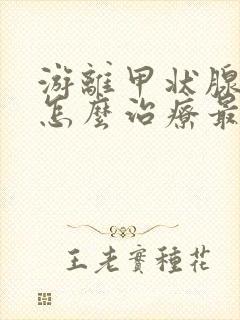 游離甲状腺
怎麼治療最
王老實種花